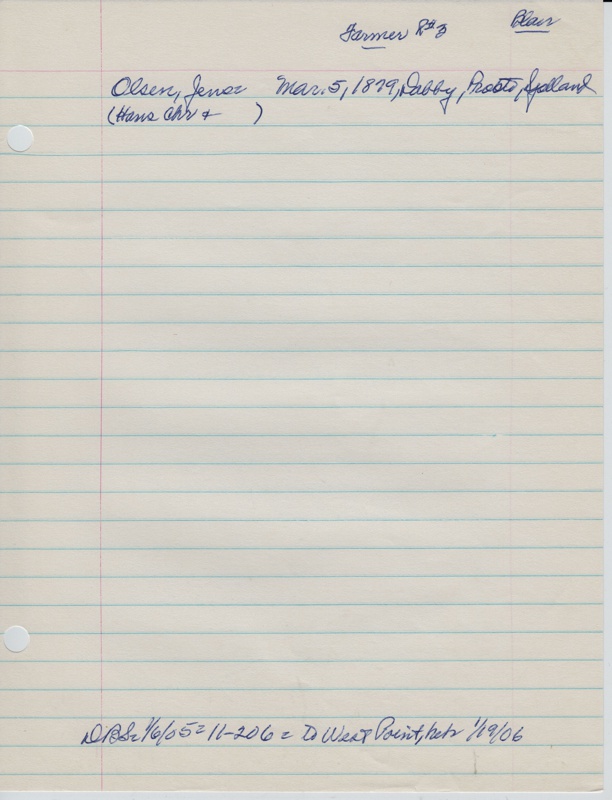 Farmer R#3 Blair
Olsen, Jens= Mar. 5, 1879, Dabby, Præstö, Sjælland
(Hans Chr + )
DBS= 1/6/05=11-206= To West Point, Nebr 1/19/06